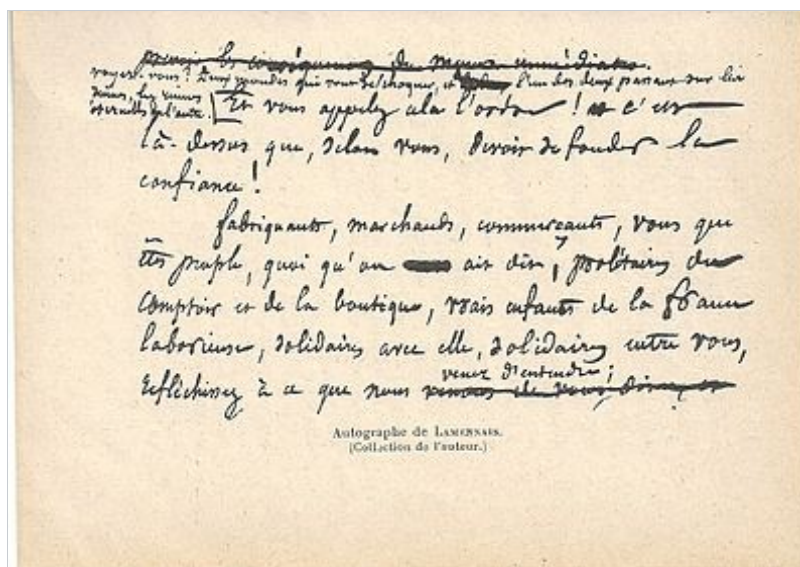 prévoir les conséquences de moyens immédiats.
voyez-vous? Deux mondes qui vont se choquer, et l'un des deux passant sur les
ruines, les ruines
éternelles de l'autre.
Et vous appelez cela l'ordre! c'est
là-dessus que, selon vous, devrait se fonder la
confiance!
fabriquants, marchands, commerçants, vous que
êtes peuple, quoi qu'on ait dit, prolétaires du
comptoir et de la boutique, vrais enfants de la France
laborieuse, solidaires avec elle, solidaires entre vous,
venez d'entendre;
réfléchissez à ce que nous venons de vous dire, et
Autographe de LAMENNAIS.
(Collection de l'auteur.)